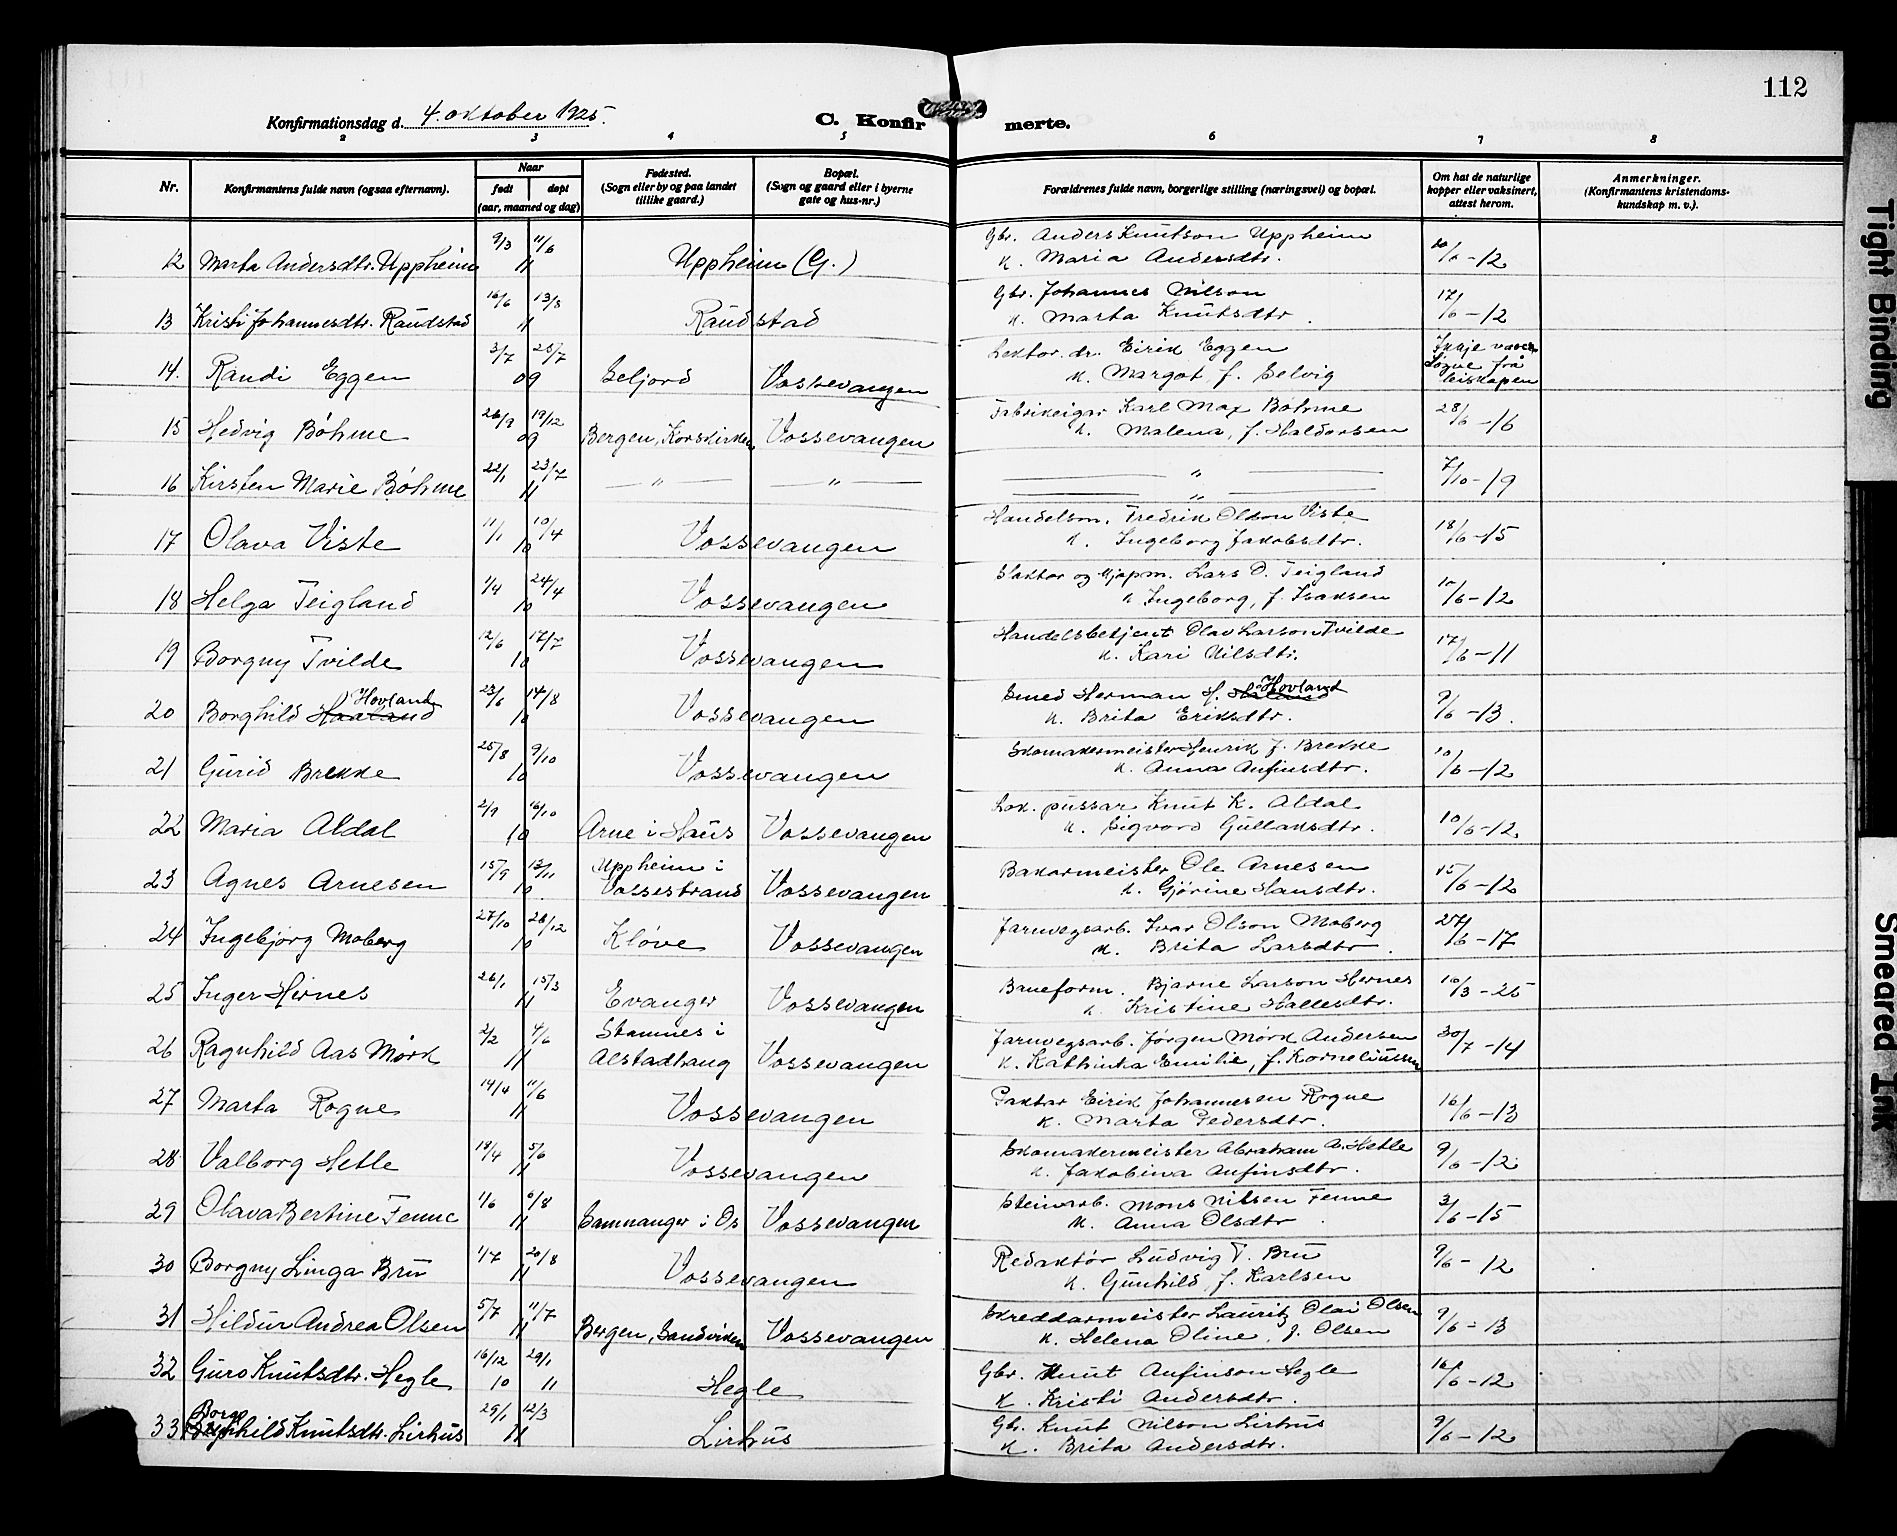 112
Konfirmationsdag d. 4. oktober 1925.
C. Konfirmerte.
2 3 4 5 6 7 8
Nr. Konfirmantens fulde navn (ogsaa efternavn). Naar født døpt (aar, maaned og dag) Fødested. (Sogn eller by og paa landet tillike gaard.) Bopæl. (Sogn og gaard eller i byerne gate og hus-nr.) Forældrenes fulde navn, borgerlige stilling (næringsvei) og bopæl. Om hat de naturlige kopper eller vaksinert, attest herom. Anmerkninger. (Konfirmantens kristendoms-kundskap m. v.).
12 Marta Andersdtr. Uppheim 9/3 11/6 11 Uppheim (G.) Gbr. Anders Knutson Uppheim
k. Maria Andersdtr. /6 - 12
13 Kristi Johannesdtr. Raudstad 16/6 13/8 11 Raudstad Gbr. Johannes Nilson
k. Marta Knutsdtr. 17/6 - 12
14. Randi Eggen 3/7 25/7 09 Seljord Vossevangen Lektor. dr. Eirik Eggen
k. Margot f. Selvig Ikkje vaks. Løyve frå bispen
15 Hedvig Bøhme 26/9 19/12 09 Bergen, Korskirken Vossevangen Fabrikeigar Karl Max Bøhme
k. Malena, f. Haldorsen 28/6 - 16
16 Kirsten Marie Bøhme 22/1 23/7 11 — " — — " — — " —
— " — 7/10 - 19
17 Olava Viste 11/1 10/4 10 Vossevangen Handelsm. Fredrik Olson Viste
k. Ingeborg Jakobsdtr. 18/6 - 15
18 Helga Teigland 1/4 24/4 10 Vossevangen Slaktar og kjøpm. Lars O. Teigland
k. Ingeborg, f. Isaksen /6 - 12
19 Borgny Tvilde 12/6 17/7 10 Vossevangen Handelsbetjent Olav Larson Tvilde
k. Kari Nilsdtr. 17/6 - 11
20 Borghild Haaland Hovland 23/6 14/8 10 Vossevangen Smed Herman H. Hovland
k. Brita Eriksdtr. 9/6 - 13.
21 Gurid Brekke 25/8 9/10 10 Vossevangen Skomakermeister Henrik J. Brekke
k. Anna Anfinsdtr. 10/6 - 12
22 Maria Aldal 2/9 16/10 10 Arne i Haus Vossevangen Lok. pussar Knut K. Aldal
k. Sigvord Gullaksdtr. 10/6 - 12
23 Agnes Arnesen 15/9 13/11 10 Uppheim i Vossestrand Vossevangen Bakarmeister Ole Arnesen
k. Gjørine Hansdtr. 15/6 - 12
24 Ingebjørg Moberg 27/10 26/12 10 Kløve Vossevangen Jarnvegsarb. Ivar Olson Moberg
k. Brita Larsdtr. 27/6 - 17
25 Inger Hernes 26/1 15/3 11 Evanger Vossevangen Baneform. Bjarne Larson Hernes
k. Kristine Hallesdtr. 10/3 - 25
26 Ragnhild Aas Mørk 2/2 4/6 11 Stamnes i Alstadhaug Vossevangen Jarnvegsarb. Jørgen Mørk Andersen
k. Kathinka Emilie, f. Korneliussen 30/7 - 14
27 Marta Rogne 14/4 11/6 11 Vossevangen Pakkar Eirik Johannesen Rogne
k. Marta Pedersdtr. 16/6 - 13
28 Valborg Hetle 19/4 5/6 11 Vossevangen Skomakermeister Abraham A. Hetle
k. Jakobina Anfinsdtr. 9/6 - 12
29 Olava Bertine Fenne 1/6 6/8 11 Samnanger i Os Vossevangen Steinarb. Mons Nilsen Fenne
k. Anna Olsdtr. 3/6 - 15
30 Borgny Linga Bru 1/7 20/8 11 Vossevangen Redaktør Ludvig T. Bru
k. Gunhild, f. Karlsen 9/6 - 12
31 Hildur Andrea Olsen 5/7 11/7 11 Bergen, Sandviken Vossevangen Skreddarmeister Lauritz Olai Olsen
k. Helena Oline, f. Olsen 9/6 - 13
32 Guro Knutsdtr. Hegle 16/12 10 29/1 11 Hegle Gbr. Knut Anfinson Hegle
k. Kristi Andersdtr. 16/6 - 12
33 Borghild Knutsdtr. Lirhus 29/1 12/3 11 Lirhus Gbr. Knut Nilson Lirhus
k. Brita Andersdtr. 9/6 - 12
Tight Binding
Smeared Ink